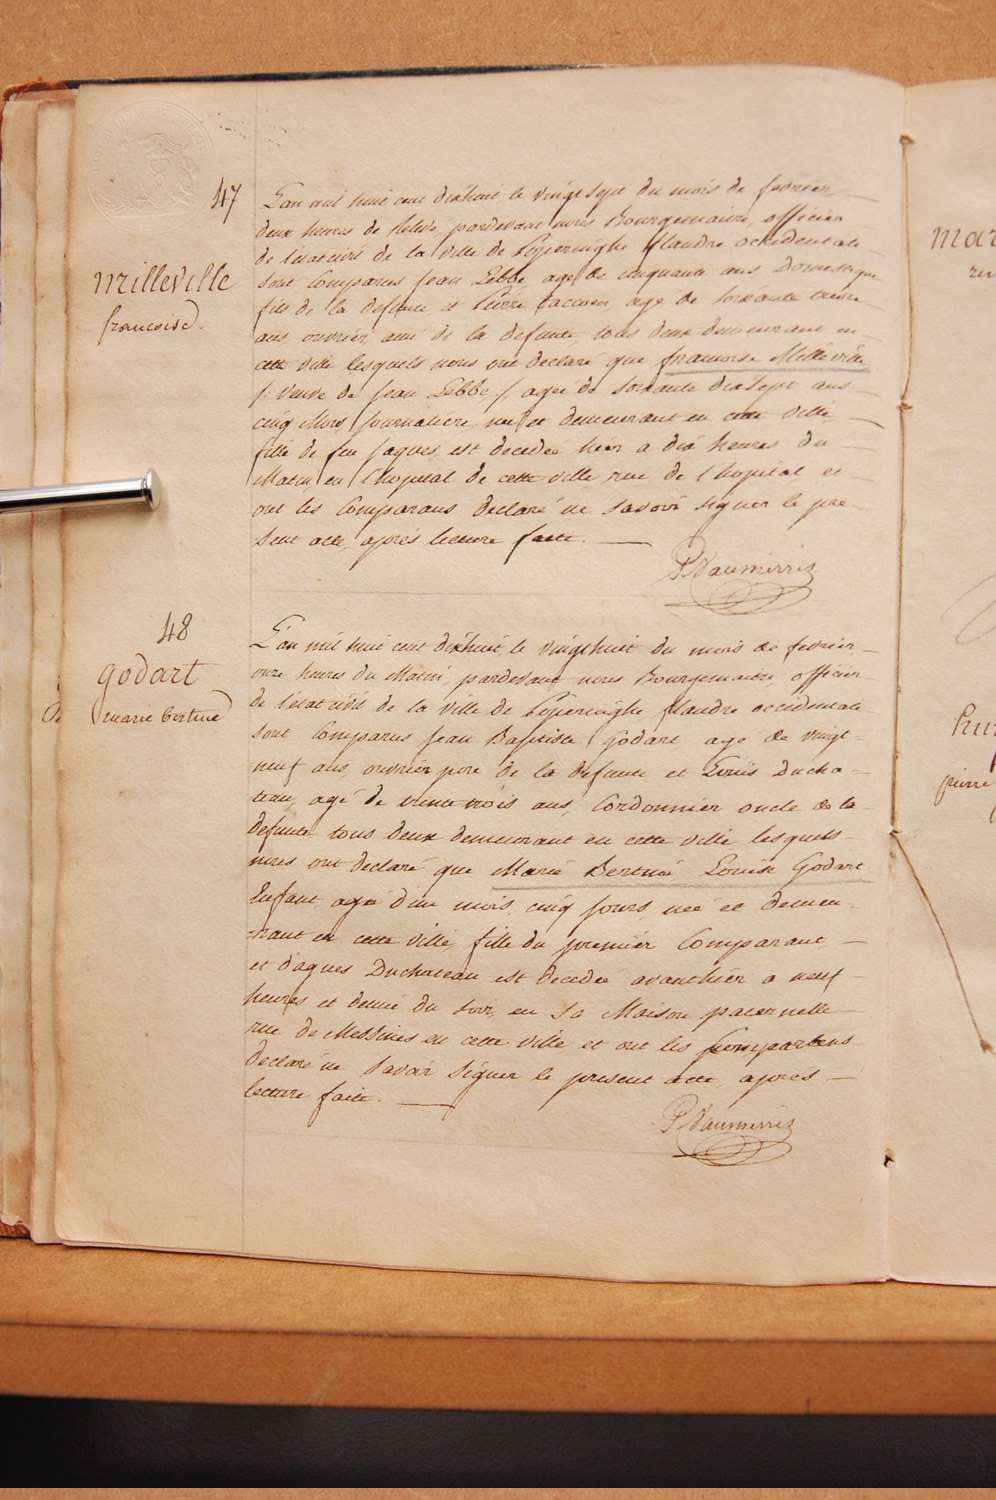 47
Milleville
francoise.
L'an mil huit cent dixhuit le vingt sept du mois de fevrier
deux heures de Relevé, pardevant nous Bourguemaitre, officier
de l'état civil de la Ville de Poperinghe flandre occidentale
sont Comparus Jean Lebbe, agé de cinquante ans Domestique
fils de la defunte, et Pierre age de soixante treize
ans, ouvrier ami de la defunte, tous deux demeurant en
cette ville lesquels nous ont declaré que francoise Milleville
/: Veuve de Jean Lebbe / ageé de soixante dix sept ans
cinq Mois, Journaliere, neé et demeurant en cette Ville,
fille de feu Jaques, est decedeé hier a dix heures du
Matin, en l'hopital de cette ville rue de l'hopital et
ont les Comparans declaré ne savoir signer le pre-
sent acte, après lecture faite.
P Vaumerris
48
godart
marie bertine
L'an mil huit cent dixhuit, le vingthuit du mois de fevrier
onze heures du Matin, pardevant nous Bourguemaitre, officier
de l'état civil de la Ville de Poperinghe, flandre occidentale
sont Comparus Jean Baptiste Godart, age de vingt-
neuf ans, ouvrier pere de la defunte et Louis Ducha-
teau, agé de trente trois ans, Cordonnier oncle de la
defunte tous deux demeurant en cette ville lesquels
nous ont declaré que Marie Bertine Louise Godart
Enfant, ageé d'un mois, cinq jours, neé et demeu-
rant en cette ville fille du premier Comparant
et d'agnes Duchateau est decedeé avanthier a neuf
heures et demie du soir, en sa Maison paternelle
rue de Messines en cette ville et ont les Comparans
declaré ne savoir signer le present acte, après
lecture faite.
P Vaumerris
Mar
pierre